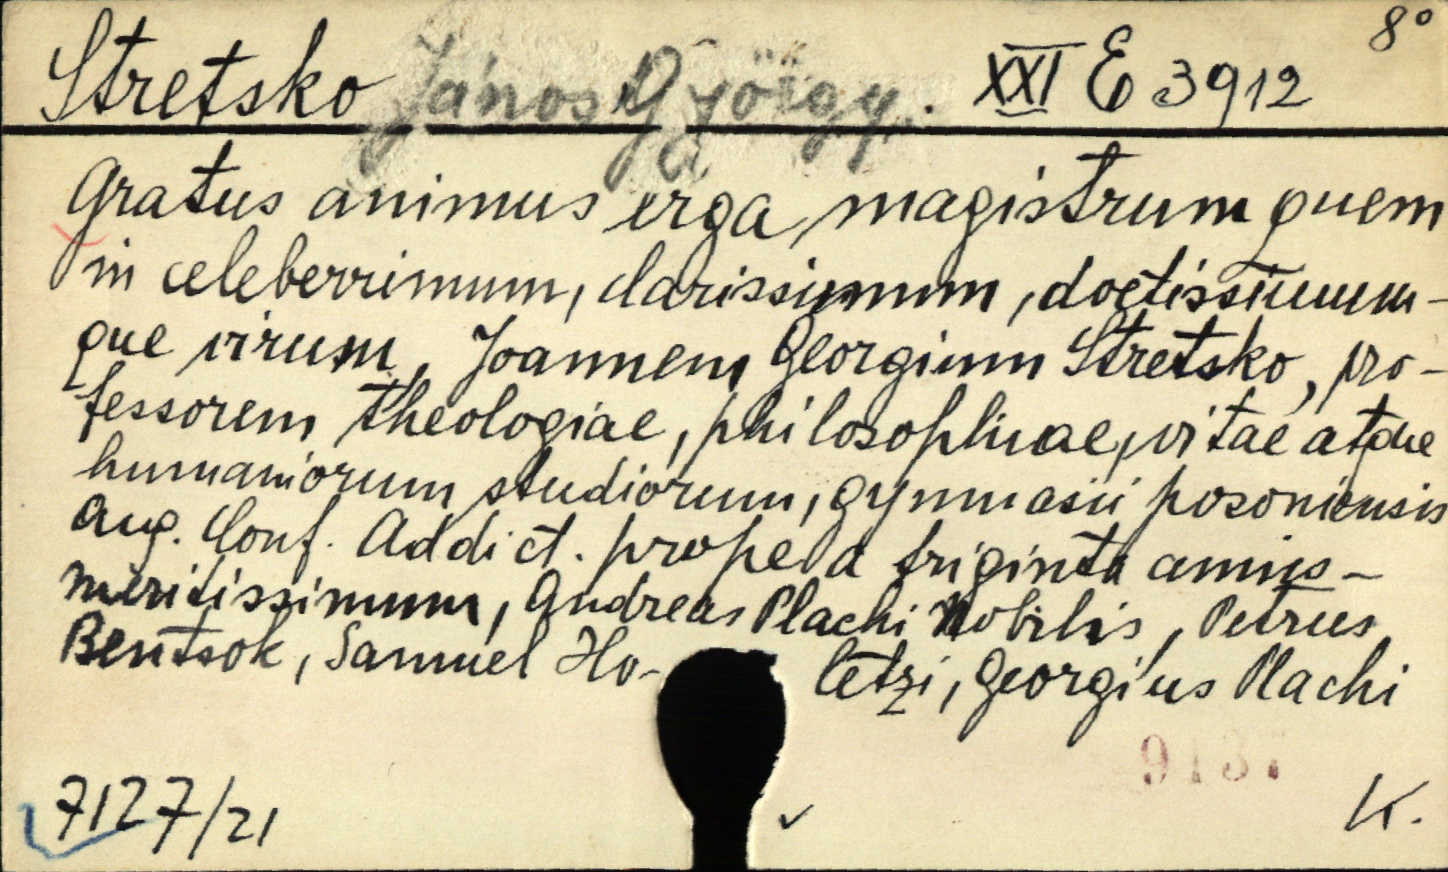 8°
Stretsko János György. XXI E 3912
Gratus animus erga magistrum quem
in celeberrimum, clarissimum, doctissimum-
que virum, Joannem Georgium Stretsko, pro-
fessorem theologiae, philosophiae, vitae atque
humaniorum studiorum, gymnasii posoniensis
Aug. Conf. Addict. prope a triginta annis-
meritissimum, Andreas Plachi Nobilis, Petrus
Bentsok, Samuel Ho- letzi, Georgius Plachi
7127/21
K.